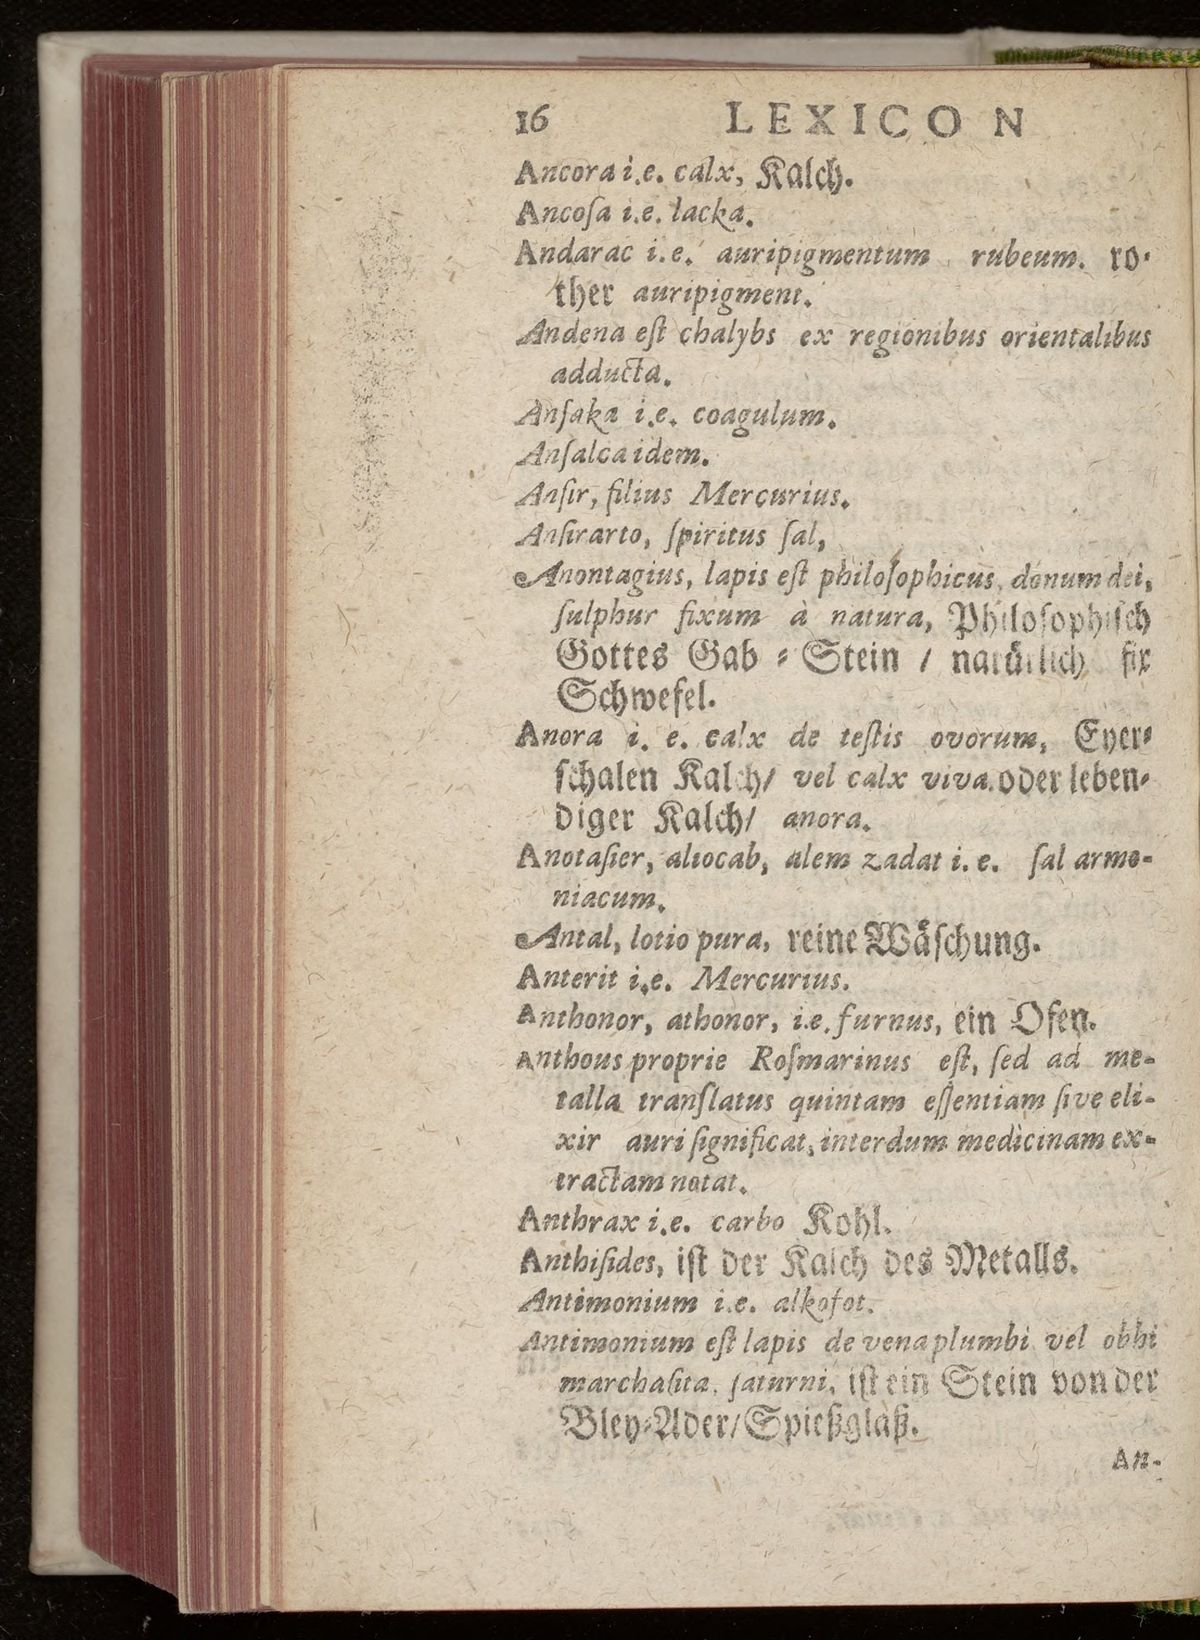 16 LEXICON
Ancora i.e. calx, Kalch.
Ancoſa i.e. lacka.
Andarac i.e. auripigmentum rubeum. ro-
ther auripigment.
Andena eſt chalybs ex regionibus orientalibus
adducta.
Anſaka i.e. coagulum.
Anſalca idem.
Anſir, filius Mercurius.
Anſirarto, ſpiritus ſal,
Anontagius, lapis eſt philoſophicus, donum dei,
ſulphur fixum à natura, Philoſophiſch
Gottes Gab ⸗ Stein / natürlich fix
Schwefel.
Anora i. e. calx de teſtis ovorum, Eyer⸗
ſchalen Kalch/ vel calx viva. oder leben-
diger Kalch/ anora.
Anotaſier, aliocab, alem zadat i. e. ſal armo-
niacum.
Antal, lotio pura, reine Wäſchung.
Anterit i.e. Mercurius.
Anthonor, athonor, i.e. furnus, ein Ofen.
Anthous proprie Roſmarinus eſt, ſed ad me-
talla tranſlatus quintam eſſentiam ſive eli-
xir auri ſignificat, interdum medicinam ex-
tractam notat.
Anthrax i.e. carbo Kohl.
Anthiſides, iſt der Kalch des Metalls.
Antimonium i.e. alkofot.
Antimonium eſt lapis de vena plumbi vel obhi
marchaſita. ſaturni, iſt ein Stein von der
Bley⸗Ader/ Spießglaß.
An-